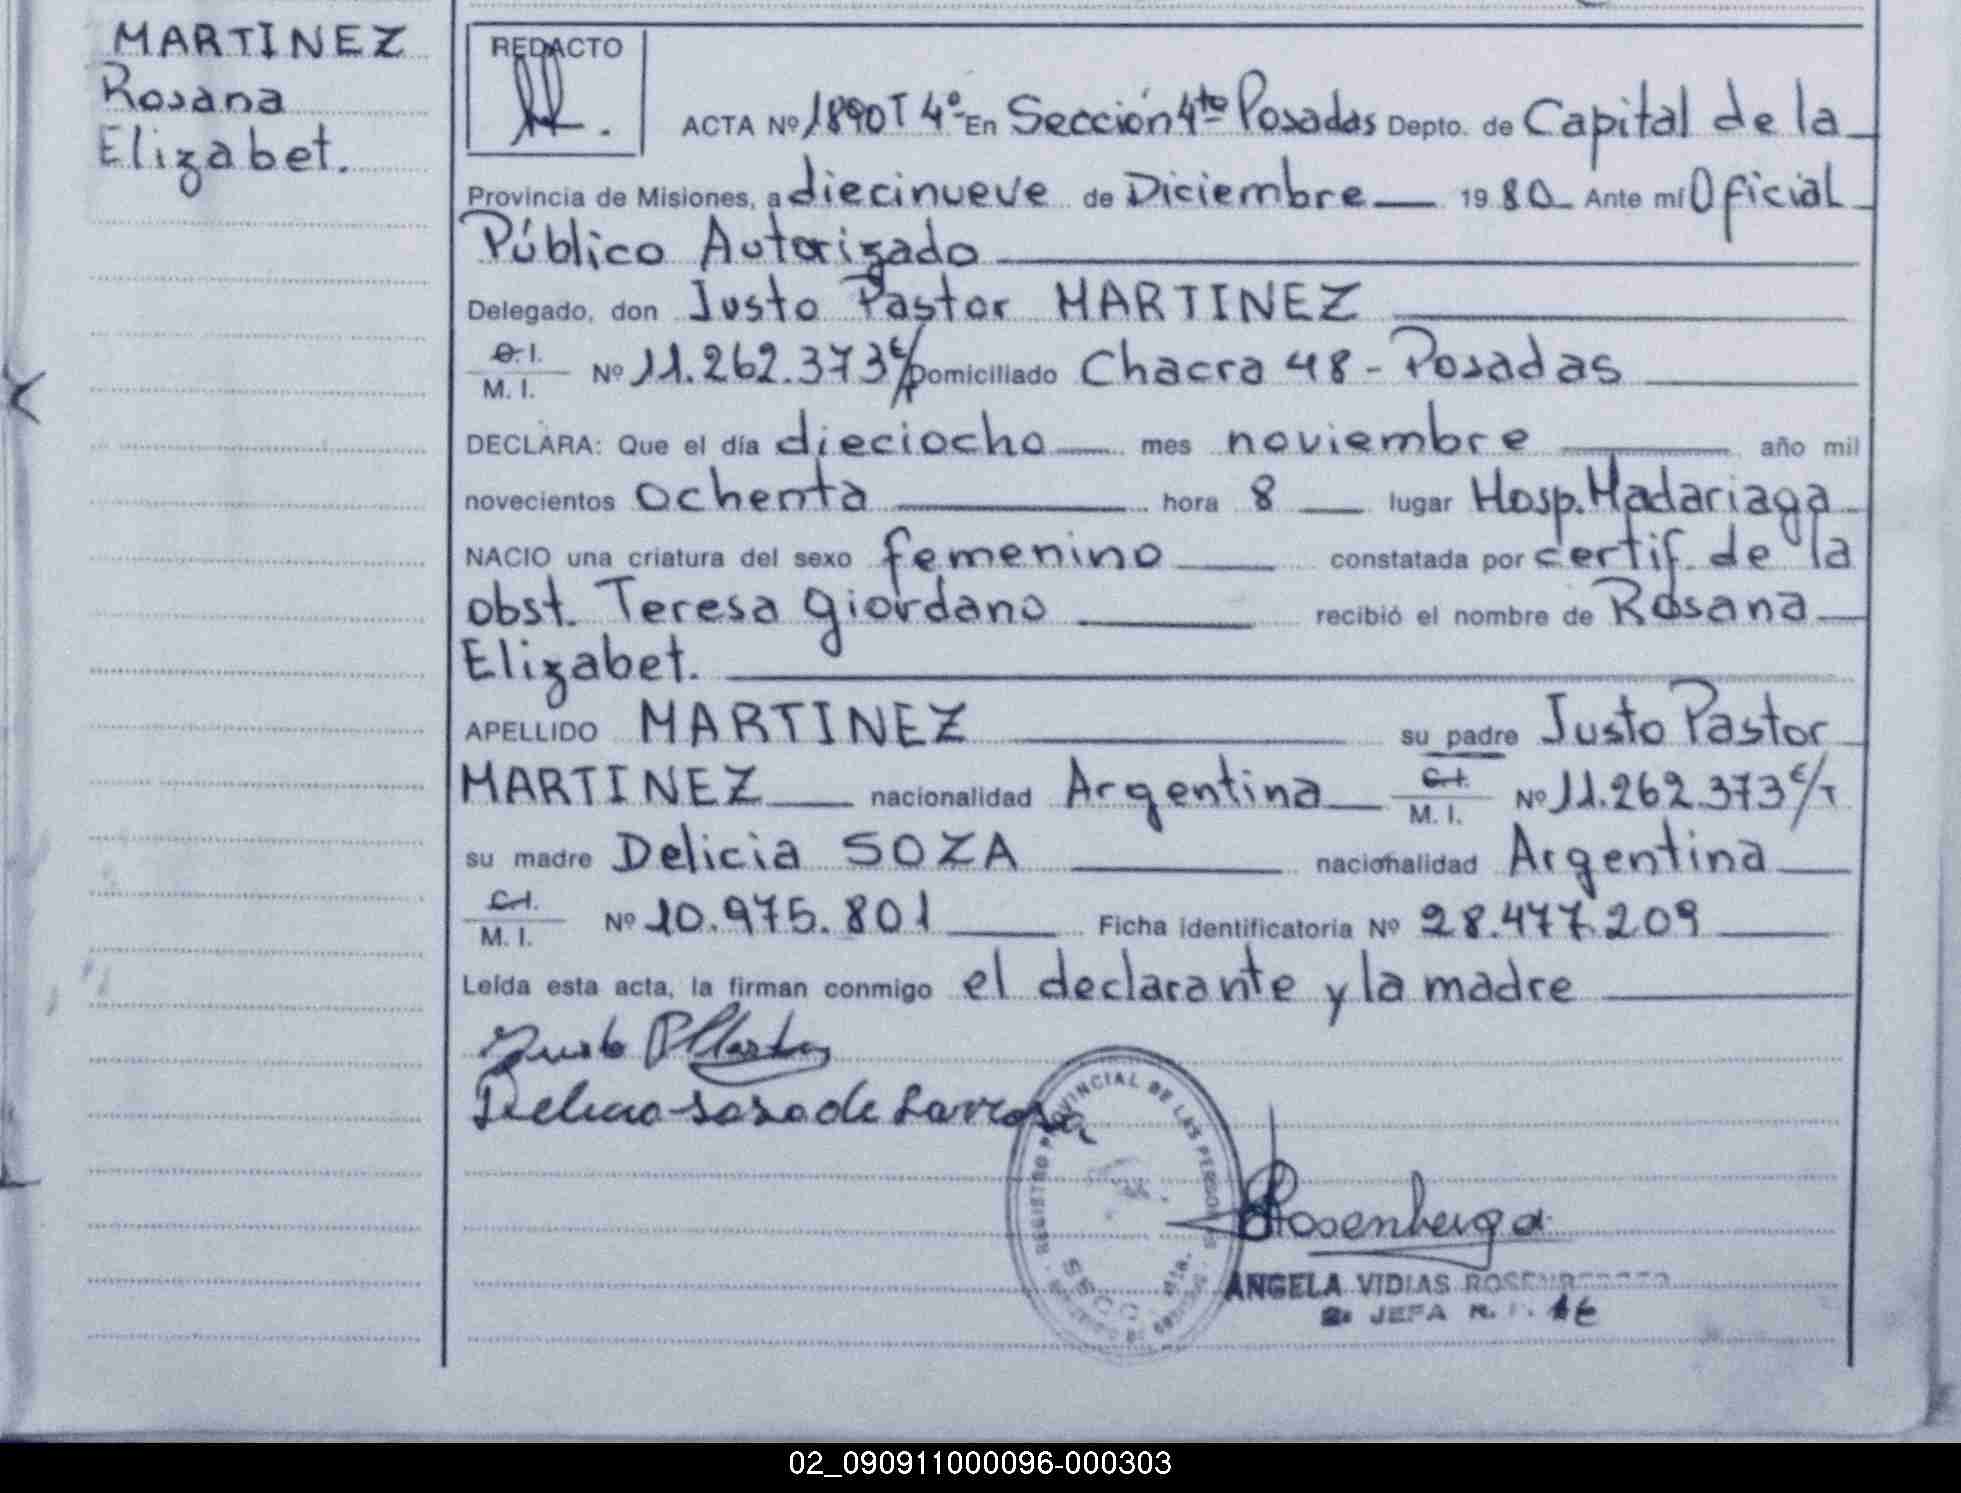 MARTINEZ
Rosana
Elizabet.
REDACTO
ACTA Nº 1890 T 4º En Sección 4ta Posadas Depto. de Capital de la
Provincia de Misiones, a diecinueve de Diciembre 1980 Ante mí Oficial
Público Autorizado
Delegado, don Justo Pastor MARTINEZ
C.I. M.I. Nº 11.262.373 c/ Domiciliado Chacra 48 - Posadas
DECLARA: Que el día dieciocho mes noviembre año mil
novecientos ochenta hora 8 lugar Hosp. Madariaga
NACIO una criatura del sexo femenino constatada por certif. de la
obst. Teresa Giordano recibió el nombre de Rosana
Elizabet.
APELLIDO MARTINEZ su padre Justo Pastor
MARTINEZ nacionalidad Argentina C.I. M.I. Nº 11.262.373 c/T
su madre Delicia SOZA nacionalidad Argentina
C.I. M.I. Nº 10.975.801 Ficha identificatoria Nº 28.477.209
Leída esta acta, la firman conmigo el declarante y la madre
REGISTRO PROVINCIAL DE LAS PERSONAS
SECC. 4ta.
ANGELA VIDIAS
JEFA
02_090911000096-000303